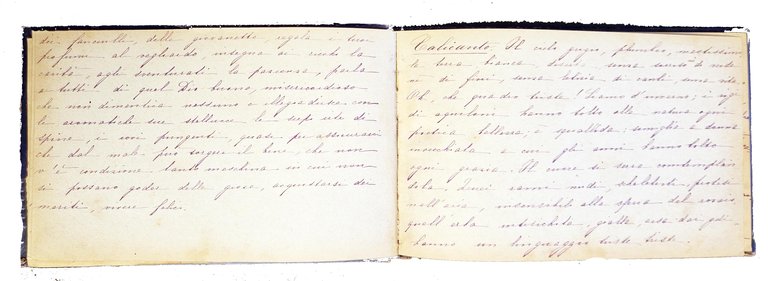 dei fanciulli, delle giovanette, regala i tuoi
profumi al vegliardo, insegna ai ricchi la
carità, agli sventurati la pazienza, parla
a tutti di quel Dio buono, misericordioso
che non dimentica nessuno e allegra desta con
le aromatiche sue stellucce le siepi irte di
spine, i rovi pungenti, quasi per assicurarci
che dal male può sorgere il bene, che non
v'è condizione tanto meschina in cui non
si possano goder delle gioie, acquistarsi dei
meriti, viver felici.
Calicanto. Il cielo grigio, plumbeo, mestissimo
la terra bianca, senza
di fiori, senza di canti, senza vita.
Oh, che quadro triste! Siamo d'inverno; i
di aquiloni hanno tolto alla natura ogni
poetica bellezza, è squallida: somiglia a donna
invecchiata a cui gli anni hanno tolto
ogni grazia. Il cuore si serra contemplan
dola, quei rami nudi, scheletriti, protesi
nell'aria, insensibili alla sferza del rovaio
quell'erba intisichita, gialla, arsa dai geli
hanno un linguaggio triste triste.